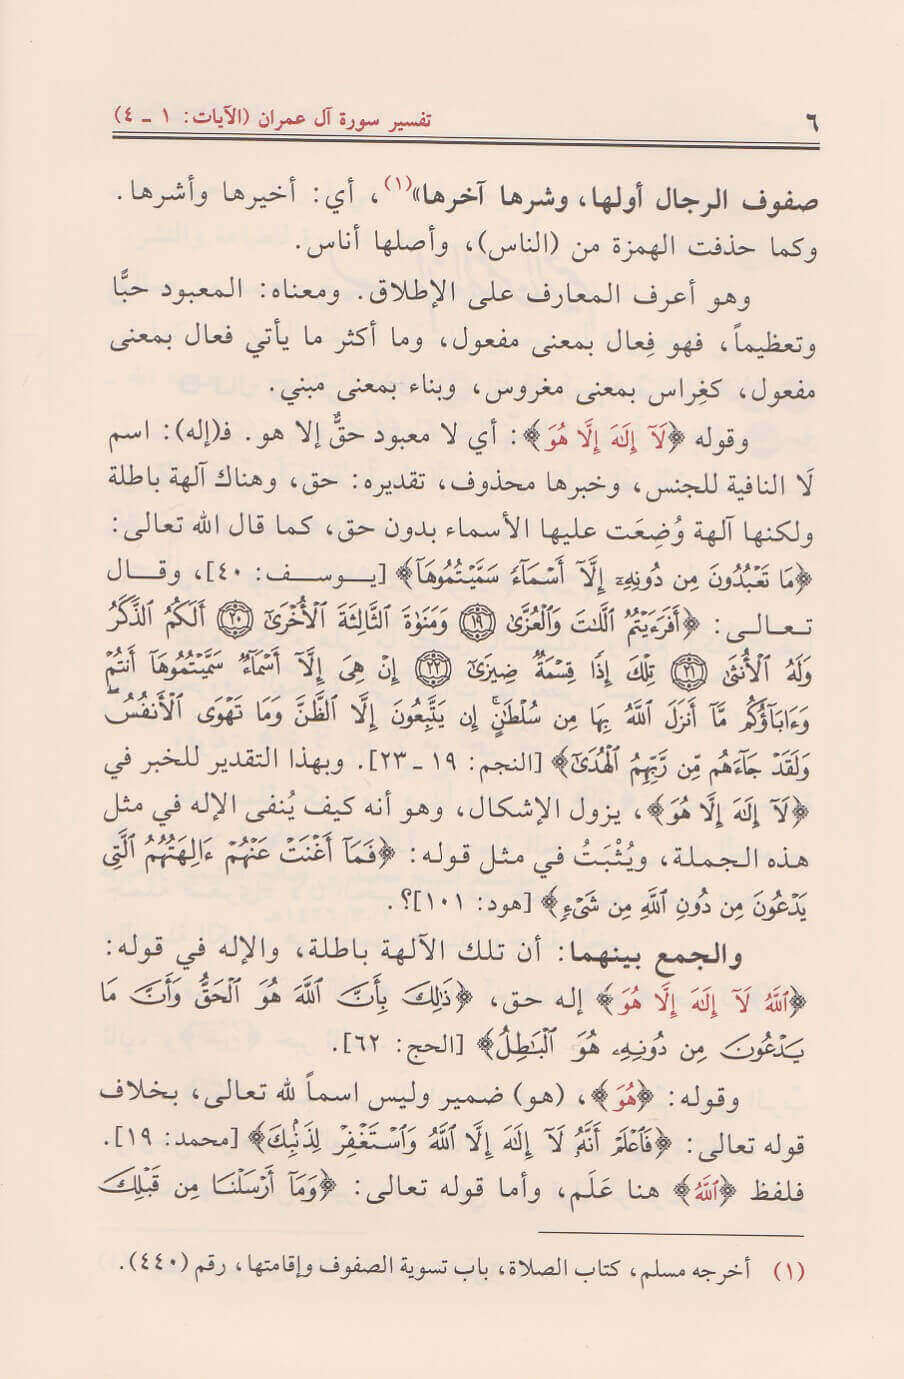 ٦ تفسير سورة آل عمران (الآيات: ١ ـ ٤)
صفوف الرجال أولها، وشرها آخرها»(١)، أي: أخيرها وأشرها.
وكما حذفت الهمزة من (الناس)، وأصلها أناس.
وهو أعرف المعارف على الإطلاق. ومعناه: المعبود حبًّا
وتعظيماً، فهو فِعال بمعنى مفعول، وما أكثر ما يأتي فعال بمعنى
مفعول، كغِراس بمعنى مغروس، وبناء بمعنى مبني.
وقوله ﴿لَآ إِلَٰهَ إِلَّا هُوَ﴾: أي لا معبود حقٌّ إلا هو. فـ(إله): اسم
لَا النافية للجنس، وخبرها محذوف، تقديره: حق، وهناك آلهة باطلة
ولكنها آلهة وُضِعَت عليها الأسماء بدون حق، كما قال الله تعالى:
﴿مَا تَعْبُدُونَ مِن دُونِهِۦٓ إِلَّآ أَسْمَآءً سَمَّيْتُمُوهَآ﴾ [يـوسـف: ٤٠]، وقـال
تـعـالـى: ﴿أَفَرَءَيْتُمُ ٱللَّٰتَ وَٱلْعُزَّىٰ ۝١٩ وَمَنَوٰةَ ٱلثَّالِثَةَ ٱلْأُخْرَىٰٓ ۝٢٠ أَلَكُمُ ٱلذَّكَرُ
وَلَهُ ٱلْأُنثَىٰ ۝٢١ تِلْكَ إِذًا قِسْمَةٌ ضِيزَىٰٓ ۝٢٢ إِنْ هِىَ إِلَّآ أَسْمَآءٌ سَمَّيْتُمُوهَآ أَنتُمْ
وَءَابَآؤُكُم مَّآ أَنزَلَ ٱللَّهُ بِهَا مِن سُلْطَٰنٍ ۚ إِن يَتَّبِعُونَ إِلَّا ٱلظَّنَّ وَمَا تَهْوَى ٱلْأَنفُسُ ۖ
وَلَقَدْ جَآءَهُم مِّن رَّبِّهِمُ ٱلْهُدَىٰٓ﴾ [النجم: ١٩ ـ ٢٣]. وبهذا التقدير للخبر في
﴿لَآ إِلَٰهَ إِلَّا هُوَ﴾، يزول الإشكال، وهو أنه كيف يُنفى الإله في مثل
هذه الجملة، ويُثْبَتُ في مثل قوله: ﴿فَمَآ أَغْنَتْ عَنْهُمْ ءَالِهَتُهُمُ ٱلَّتِى
يَدْعُونَ مِن دُونِ ٱللَّهِ مِن شَىْءٍ﴾ [هود: ١٠١]؟.
والجمع بينهما: أن تلك الآلهة باطلة، والإله في قوله:
﴿ٱللَّهُ لَآ إِلَٰهَ إِلَّا هُوَ﴾ إله حق، ﴿ذَٰلِكَ بِأَنَّ ٱللَّهَ هُوَ ٱلْحَقُّ وَأَنَّ مَا
يَدْعُونَ مِن دُونِهِۦ هُوَ ٱلْبَٰطِلُ﴾ [الحج: ٦٢].
وقوله: ﴿هُوَ﴾، (هو) ضمير وليس اسماً لله تعالى، بخلاف
قوله تعالى: ﴿فَٱعْلَمْ أَنَّهُۥ لَآ إِلَٰهَ إِلَّا ٱللَّهُ وَٱسْتَغْفِرْ لِذَنۢبِكَ﴾ [محمد: ١٩].
فلفظ ﴿ٱللَّهُ﴾ هنا عَلَم، وأما قوله تعالى: ﴿وَمَآ أَرْسَلْنَا مِن قَبْلِكَ
(١) أخرجه مسلم، كتاب الصلاة، باب تسوية الصفوف وإقامتها، رقم (٤٤٠).